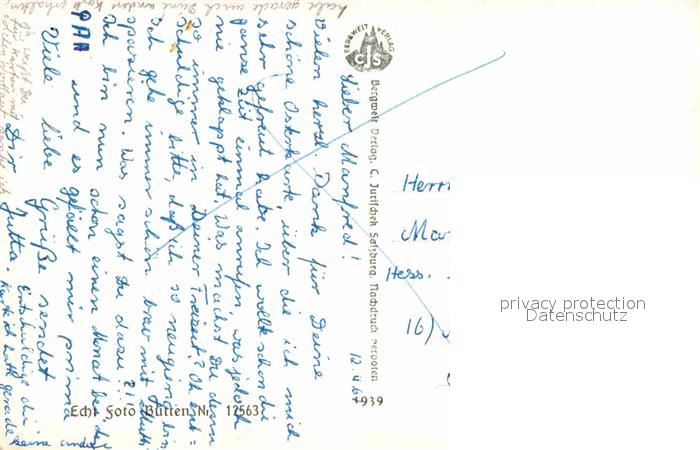 12.4.61
Lieber Manfred!
Vielen herzl. Dank für Deine
schöne Osterkarte, über die ich mich
sehr gefreut habe. Ich wollte schon die
ganze Zeit einmal anrufen, was jedoch
nie geklappt hat. Was machst Du denn
so immer in Deiner Freizeit? Oh ent=
schuldige bitte, daß ich so neugierig bin.
Ich gehe immer schön brav mit Mutti
spazieren. Was sagst Du dazu?!!
Ich bin nun schon einen Monat bei der
PAA und es gefällt mir prima
Viele liebe Grüße sendet
Dir Jutta.
Entschuldige die
Karte ich hatte gerade
keine andere
habe gerade auch Deine andere Karte erhalten
BERGWELT VERLAG
CJS
Bergwelt Verlag, C. Jurischek Salzburg. Nachdruck verboten
1939
Echt Foto Bütten Nr. 12563
Herrn
Hess.
16)
privacy protection
Datenschutz